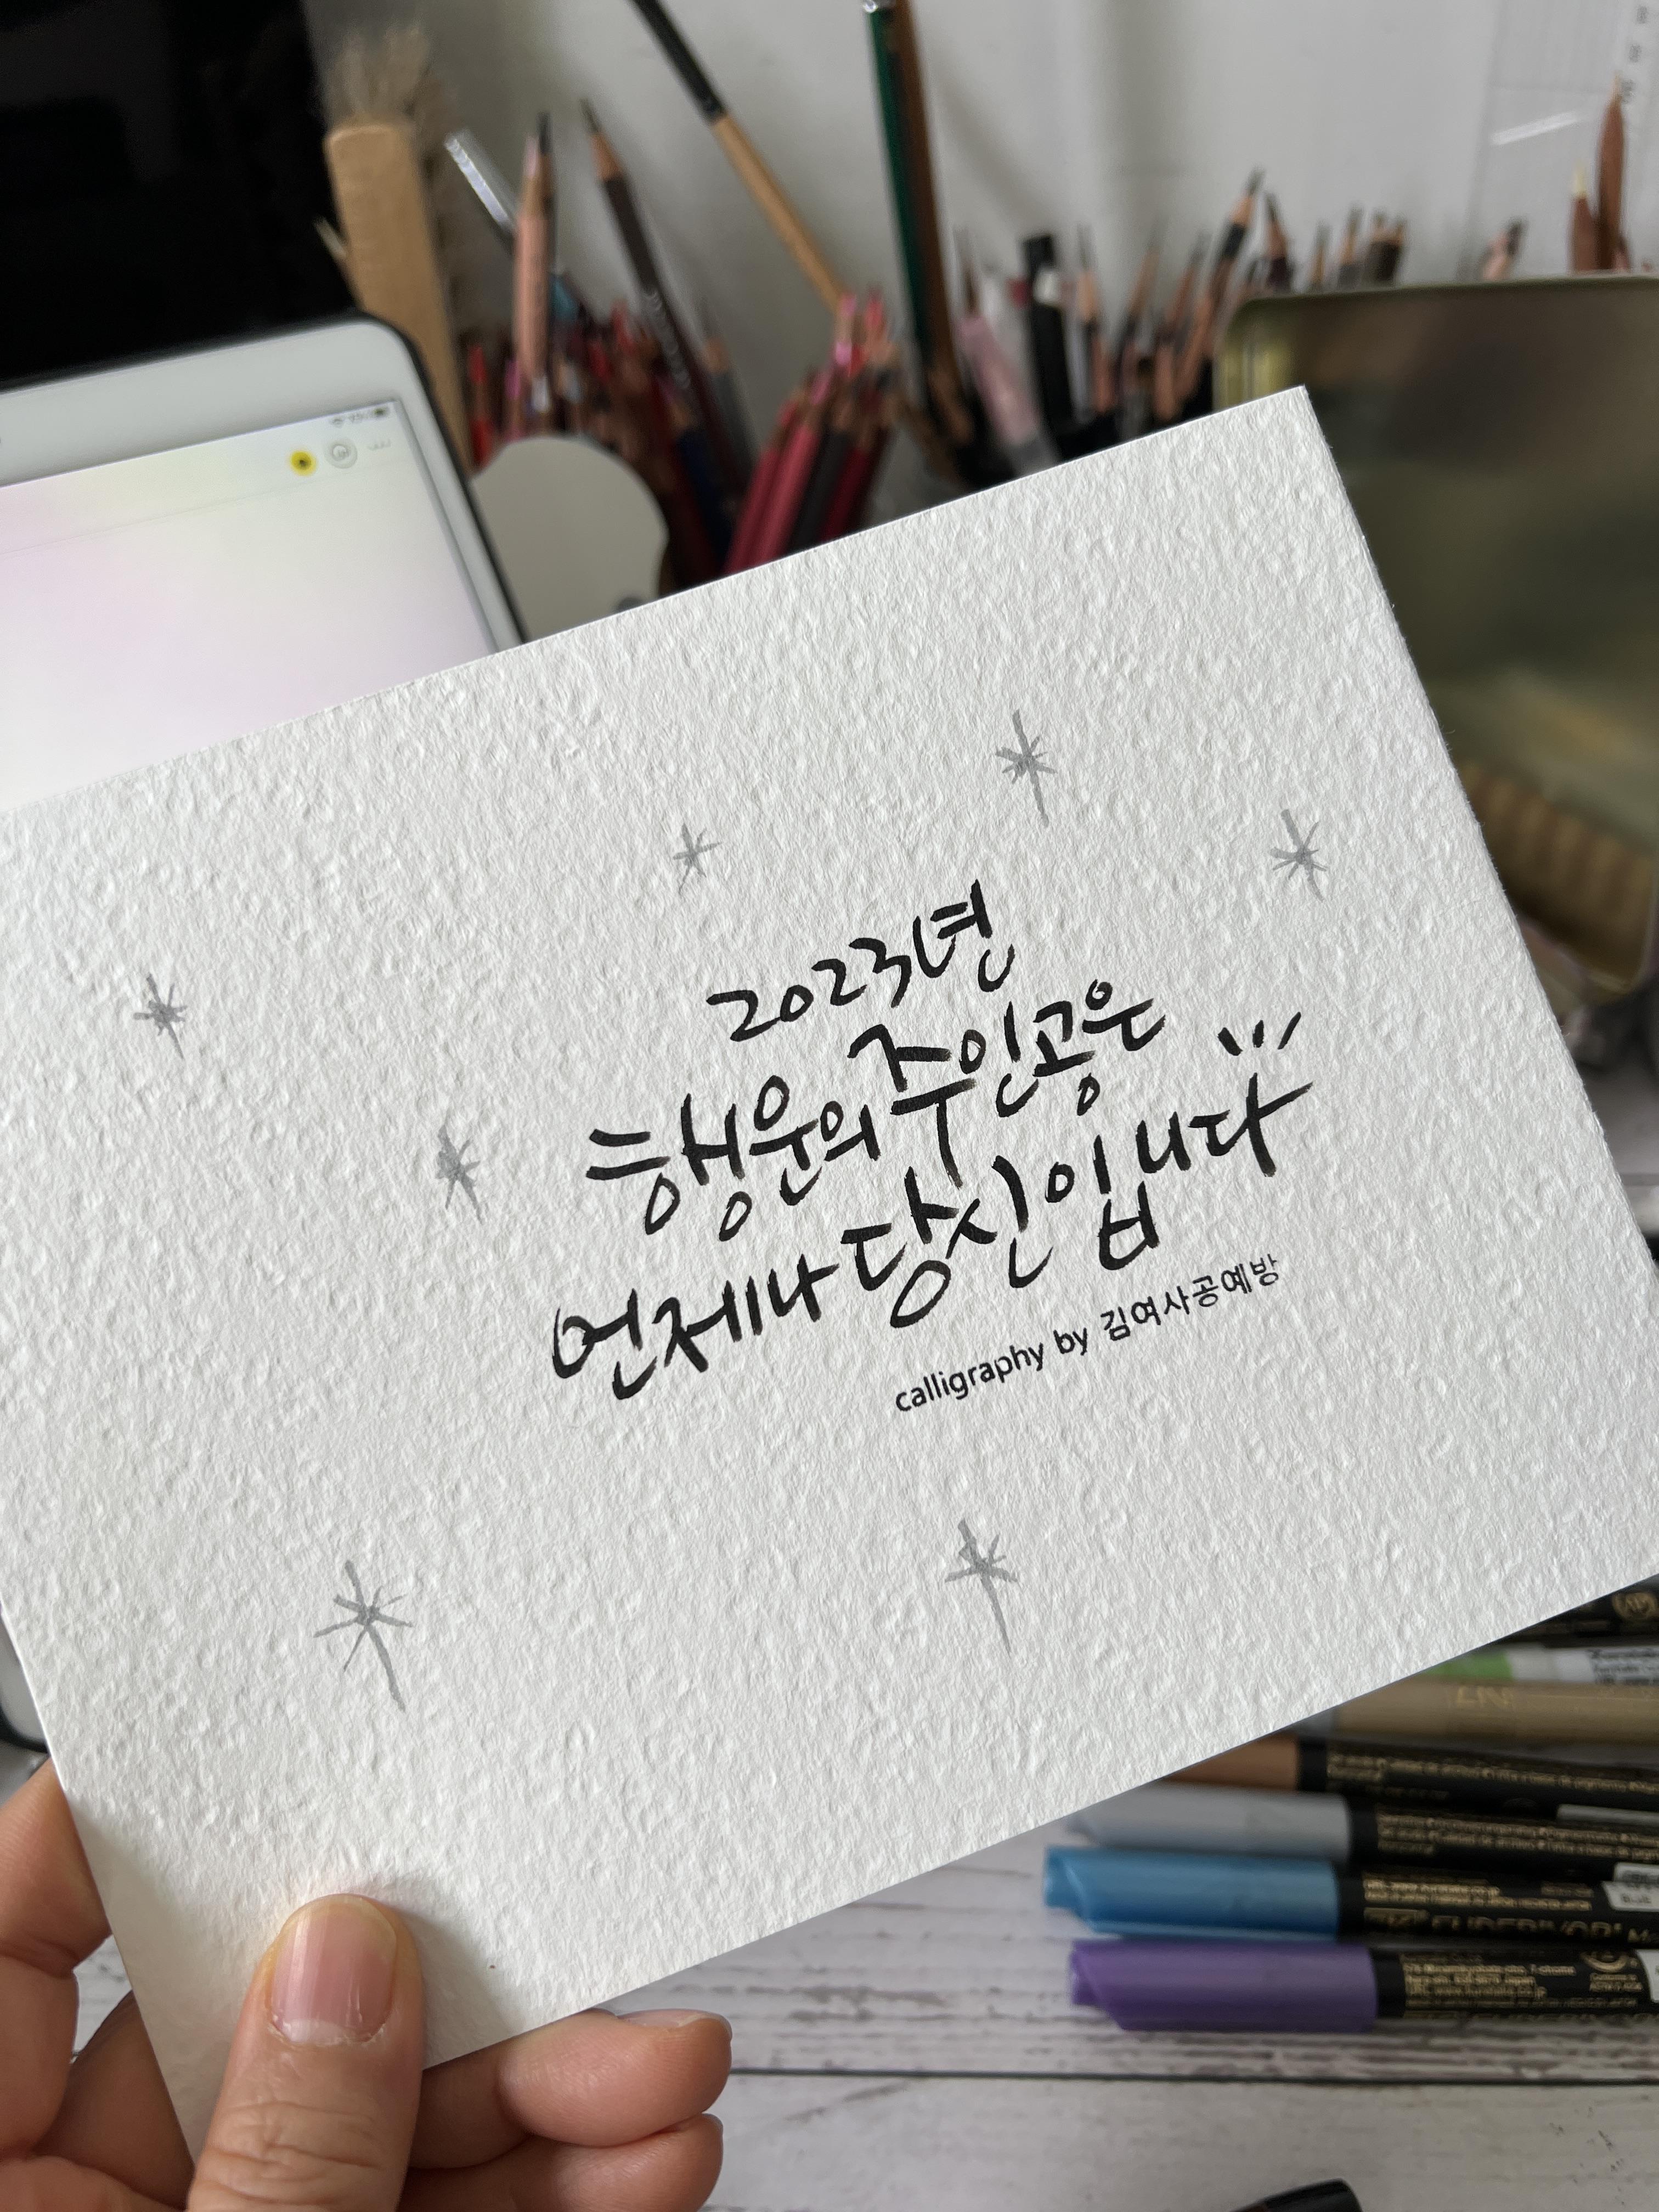 2023년
행운의 주인공은
언제나 당신입니다
calligraphy by 김여사공예방